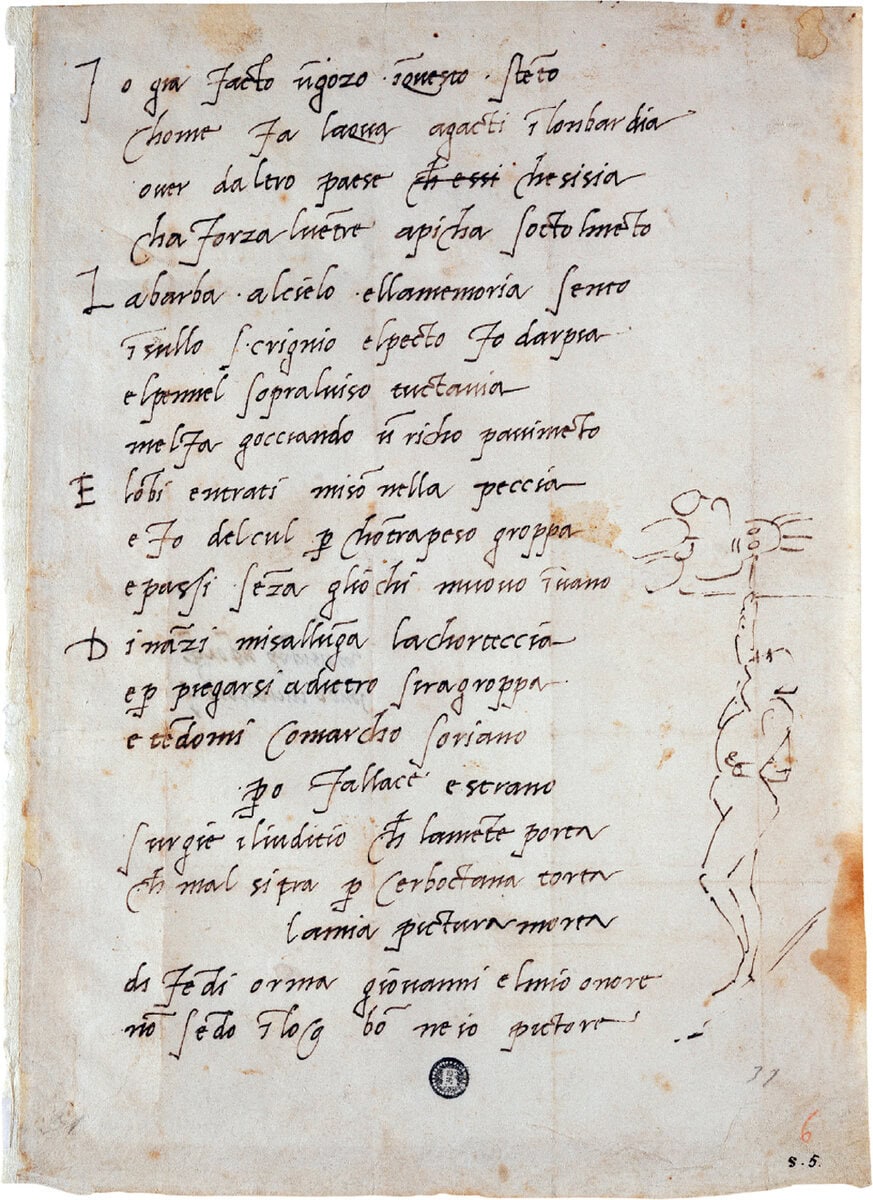 Io gia facto ūgozo īquesto stēto
chome fa laqua agacti ī lonbardia
over daltro paese ch̄ essi chesisia
cha forza luētre apicha socto lmēto
La barba alcielo ellamemoria sento
īsullo scrignio elpecto fo darpia
elpennel sopraluiso tuctavia
melfa gocciando ū richo pauimēto
E lōbi entrati misō nella peccia
e fo delcul p̱ chōtrapeso groppa
epassi sēza gliochi muovo īuano
Dināzi misallūga lachorteccia
ep̱ piegarsi adietro siragroppa
e tēdomi comarcho soriano
p̱o fallace estrano
surgie iliuditio ch̄ lamēte porta
ch̄ mal sitra p̱ cerboctana torta
lamia pictura morta
difedi orma giovanni elmio onore
nō sēdo ī loco bō ne io pictore
37
6
8.5.